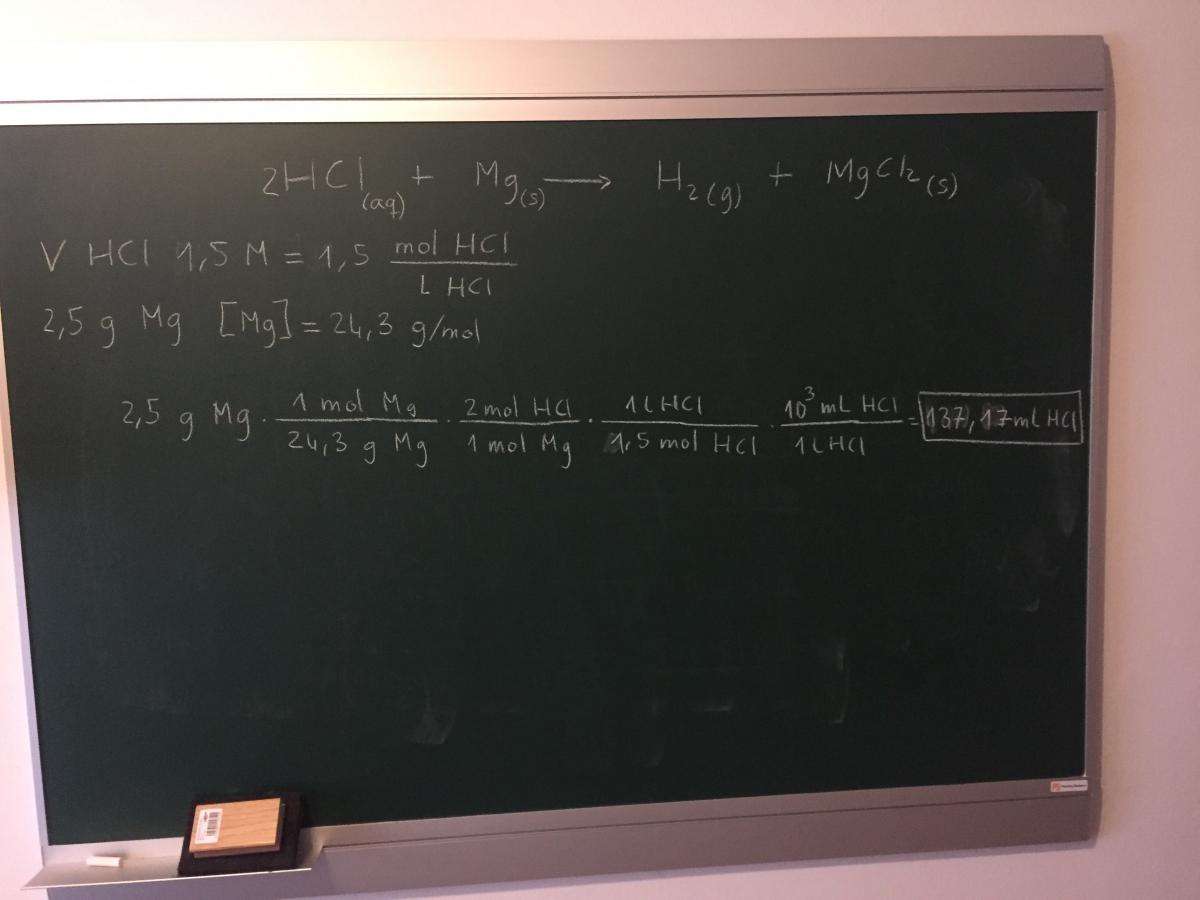 2HCl(aq) + Mg(s) ⟶ H2(g) + MgCl2(s)
V HCl 1,5 M = 1,5 mol HCl / L HCl
2,5 g Mg [Mg] = 24,3 g/mol
2,5 g Mg · 1 mol Mg / 24,3 g Mg · 2 mol HCl / 1 mol Mg · 1 L HCl / 1,5 mol HCl · 10³ mL HCl / 1 L HCl = 137,17 ml HCl